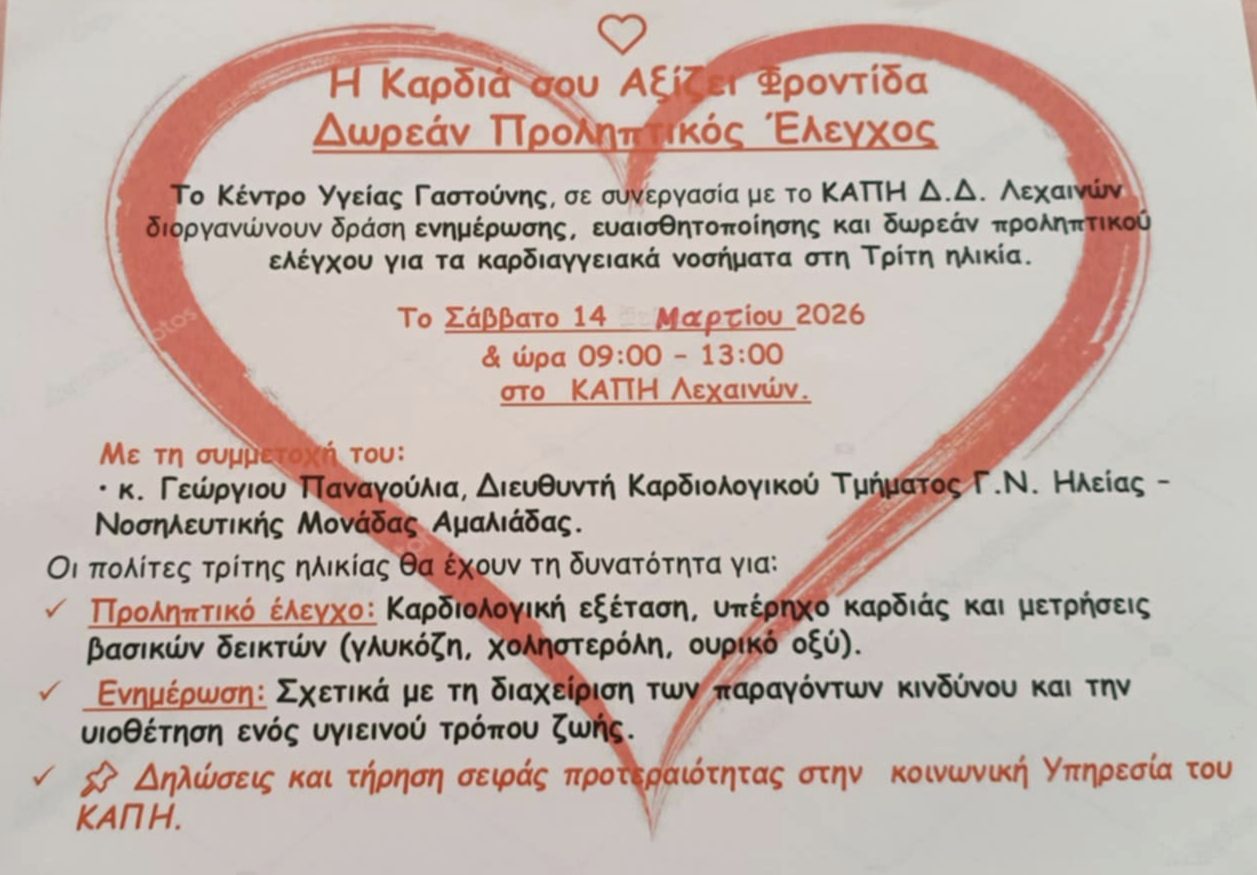 Η Καρδιά σου Αξίζει Φροντίδα
Δωρεάν Προληπτικός Έλεγχος
Το Κέντρο Υγείας Γαστούνης, σε συνεργασία με το ΚΑΠΗ Δ.Δ. Λεχαινών
διοργανώνουν δράση ενημέρωσης, ευαισθητοποίησης και δωρεάν προληπτικού
ελέγχου για τα καρδιαγγειακά νοσήματα στη Τρίτη ηλικία.
Το Σάββατο 14 Μαρτίου 2026
& ώρα 09:00 - 13:00
στο ΚΑΠΗ Λεχαινών.
Με τη συμμετοχή του:
· κ. Γεώργιου Παναγούλια, Διευθυντή Καρδιολογικού Τμήματος Γ.Ν. Ηλείας -
Νοσηλευτικής Μονάδας Αμαλιάδας.
Οι πολίτες τρίτης ηλικίας θα έχουν τη δυνατότητα για:
✓ Προληπτικό έλεγχο: Καρδιολογική εξέταση, υπέρηχο καρδιάς και μετρήσεις
βασικών δεικτών (γλυκόζη, χοληστερόλη, ουρικό οξύ).
✓ Ενημέρωση: Σχετικά με τη διαχείριση των παραγόντων κινδύνου και την
υιοθέτηση ενός υγιεινού τρόπου ζωής.
✓ 📌 Δηλώσεις και τήρηση σειράς προτεραιότητας στην κοινωνική Υπηρεσία του
ΚΑΠΗ.